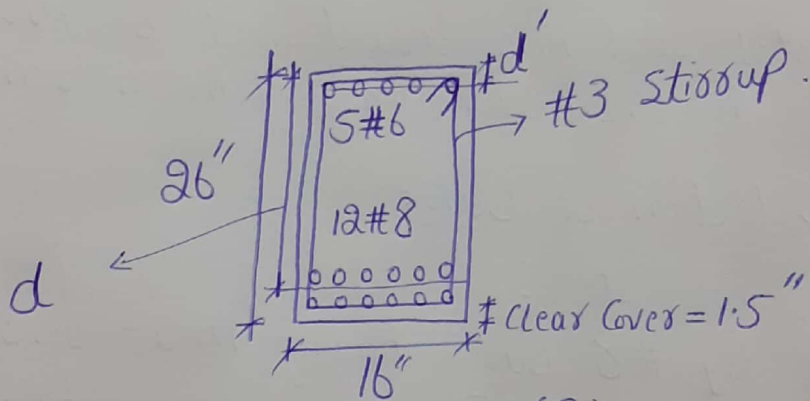 d'
#3 Stirrup.
5#6
26"
12#8
d
Clear Cover = 1.5"
16"